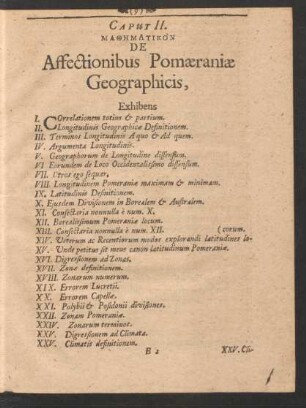 (9)
CAPUT II.
ΜΑΘΗΜΑΤΙΚΟΝ
DE
Affectionibus Pomæraniæ
Geographicis,
Exhibens
I. COrrelationem totius & partium.
II. Longitudinis Geographicæ Definitionem.
III. Terminos Longitudinis Aquo & Ad quem.
IV. Argumenta Longitudinis.
V. Geographorum de Longitudine dissensum.
VI Eorundem de Loco Occidentalissimo dissensum.
VII. Utros ego sequar,
VIII. Longitudinem Pomeraniæ maximam & minimam.
IX. Latitudinis Definitionem.
X. Ejusdem Divisionem in Borealem & Australem.
XI. Consectaria nonnulla è num. X.
XII. Borealissimum Pomeraniæ locum.
XIII. Consectaria nonnulla è num. XII. (corum.
XIV. Veterum ac Recentiorum modos explorandi latitudines lo-
XV. Unde petitus sit meus canon latitudinum Pomeraniæ,
XVI. Digressionem ad Zonas.
XVII. Zonæ definitionem.
XVIII. Zonarum numerum.
XIX. Errorem Lucretii.
XX. Errorem Capellæ.
XXI. Polybii & Posidonii divisiones.
XXII. Zonam Pomeraniæ.
XXIV. Zonarum terminos.
XXV. Digressionem ad Climata.
XXV. Climatis definitionem.
B 2 XXV. Cli-